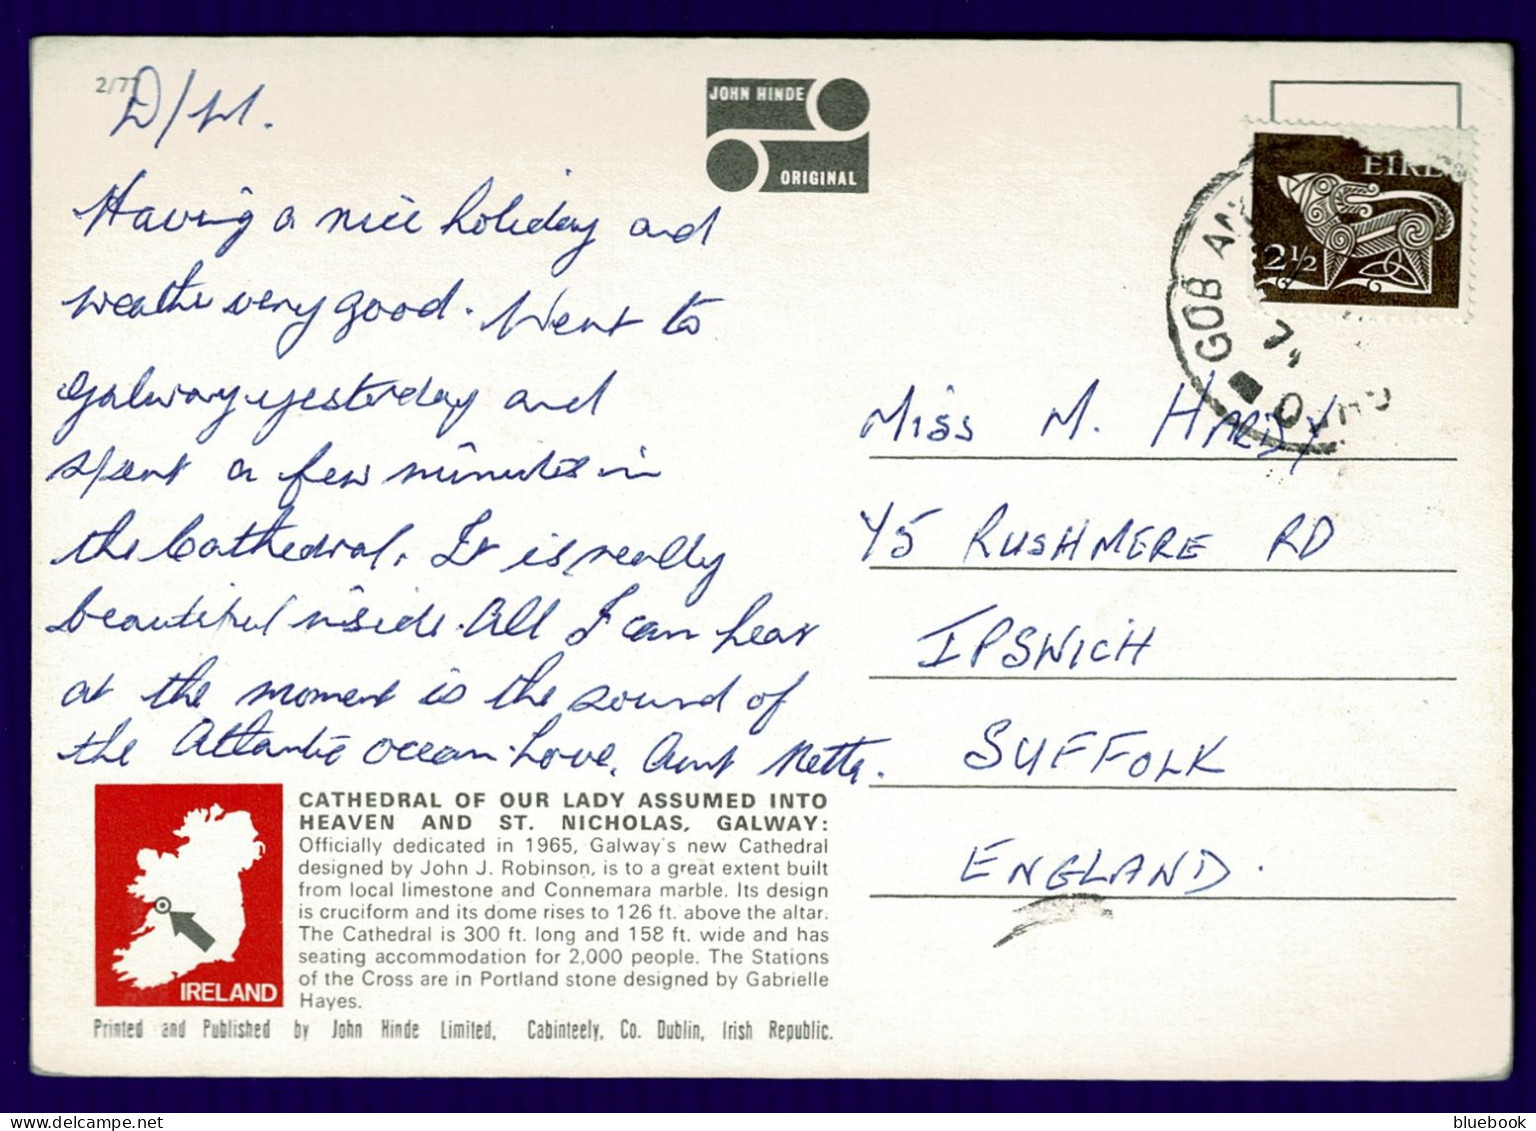 2/77
D/M.
JOHN HINDE
ORIGINAL
EIRE
2½
GOB AN
Having a nice holiday and
weather very good. Went to
Galway yesterday and
spent a few minutes in
the Cathedral. It is really
beautiful inside. All I can hear
at the moment is the sound of
the Atlantic ocean. Love, Aunt Netta.
Miss M. HARDY
45 RUSHMERE RD
IPSWICH
SUFFOLK
ENGLAND.
CATHEDRAL OF OUR LADY ASSUMED INTO
HEAVEN AND ST. NICHOLAS, GALWAY:
Officially dedicated in 1965, Galway's new Cathedral
designed by John J. Robinson, is to a great extent built
from local limestone and Connemara marble. Its design
is cruciform and its dome rises to 126 ft. above the altar.
The Cathedral is 300 ft. long and 158 ft. wide and has
seating accommodation for 2,000 people. The Stations
of the Cross are in Portland stone designed by Gabrielle
Hayes.
IRELAND
Printed and Published by John Hinde Limited, Cabinteely, Co. Dublin, Irish Republic.
bluebook